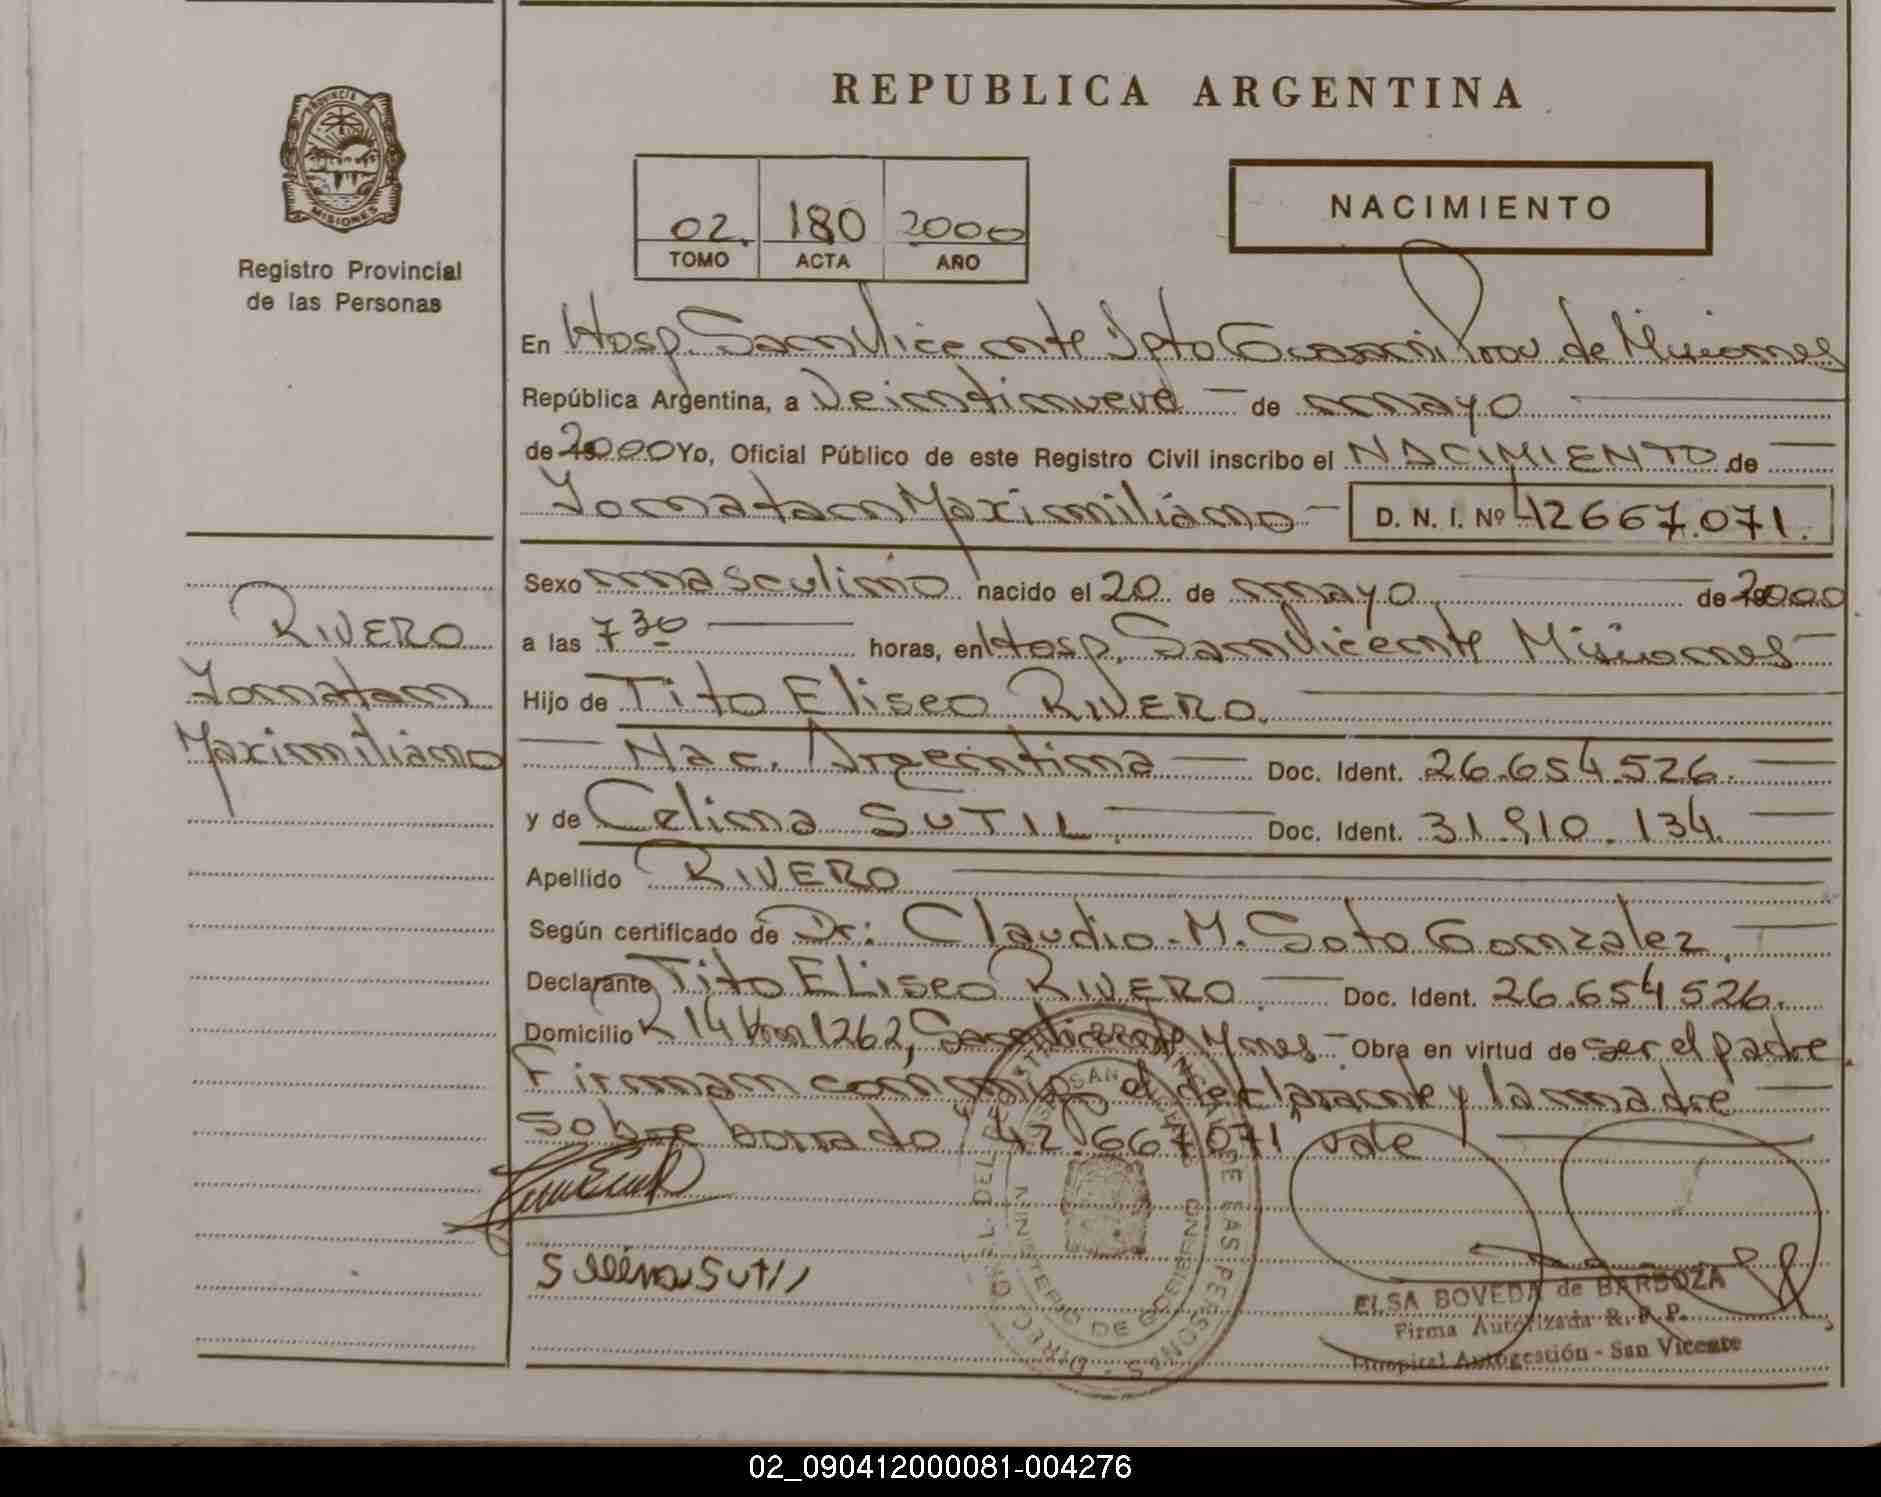 REPUBLICA ARGENTINA
PROVINCIA DE
MISIONES
Registro Provincial
de las Personas
02. 180 2000
TOMO ACTA AÑO
NACIMIENTO
En Hosp. San Vicente Dpto Guarani Prov de Misiones
República Argentina, a Veintinueve de mayo
de 2000 Yo, Oficial Público de este Registro Civil inscribo el NACIMIENTO de
Yonatan Maximiliano D. N. I. Nº 42667.071.
Sexo masculino nacido el 20 de mayo de 2000
a las 7 30 horas, en Hosp. San Vicente Misiones
Hijo de Tito Eliseo RIVERO.
Nac. Argentina Doc. Ident. 26.654.526.
y de Celina SUTIL Doc. Ident. 31.910.134.
Apellido RIVERO
Según certificado de Dr: Claudio M. Soto Gonzalez.
Declarante Tito ELiseo RIVERO Doc. Ident. 26.654.526.
Domicilio R 14 Km 1262, San Vicente Mnes Obra en virtud de ser el padre.
Firman conmigo el declarante y la madre
Sobre borrado "42.667.071" vale
RIVERO
Yonatan
Maximiliano
Sutil
ELSA BOVEDA de BARBOZA
Firma Autorizada R. P. P.
Hospital Autogestión - San Vicente
MINISTERIO DE GOBIERNO
02_090412000081-004276